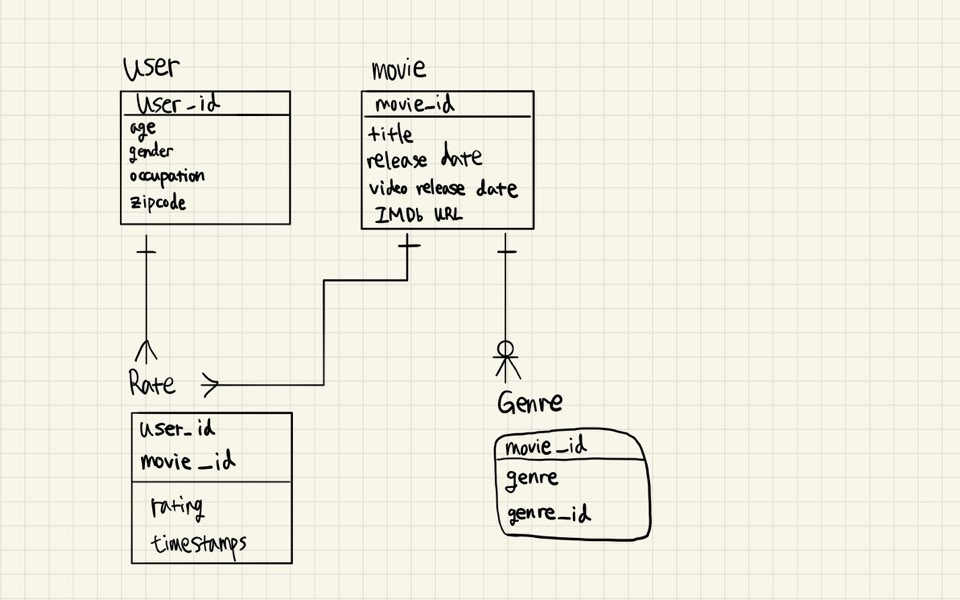 User
User_id
age
gender
occupation
zipcode
movie
movie_id
title
release date
video release date
IMDb URL
Rate
user_id
movie_id
rating
timestamps
Genre
movie_id
genre
genre_id